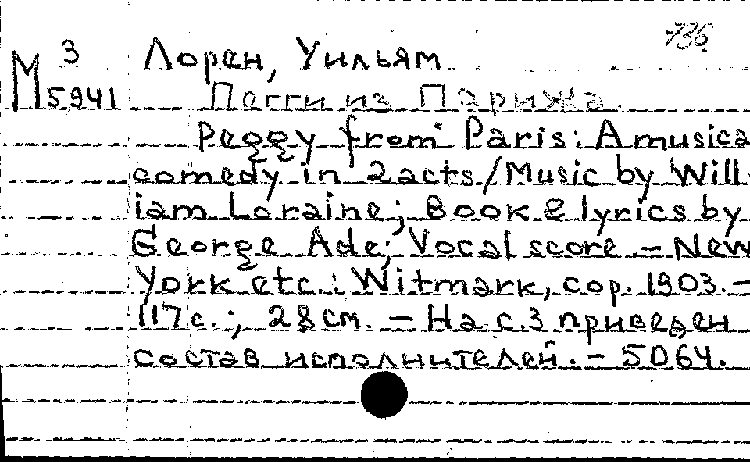 736
М 3 Лорен, Уильям
5941 Пегги из Парижа.
Peggy from Paris: A musica
comedy in 2 acts / Music by Will-
iam Loraine; Book & lyrics by
George Ade; Vocal score – New
York etc.: Witmark, cop. 1903. –
117 с.; 28 см. – На с. 3 приведен
состав исполнителей. – 5064.